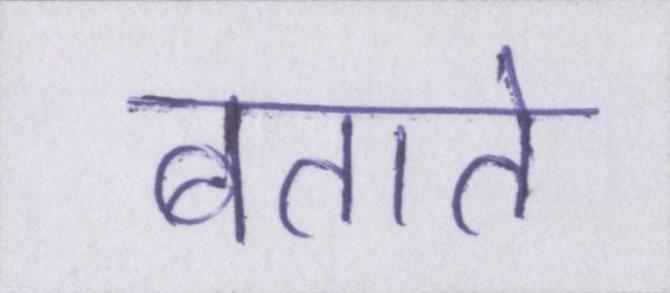 बताते